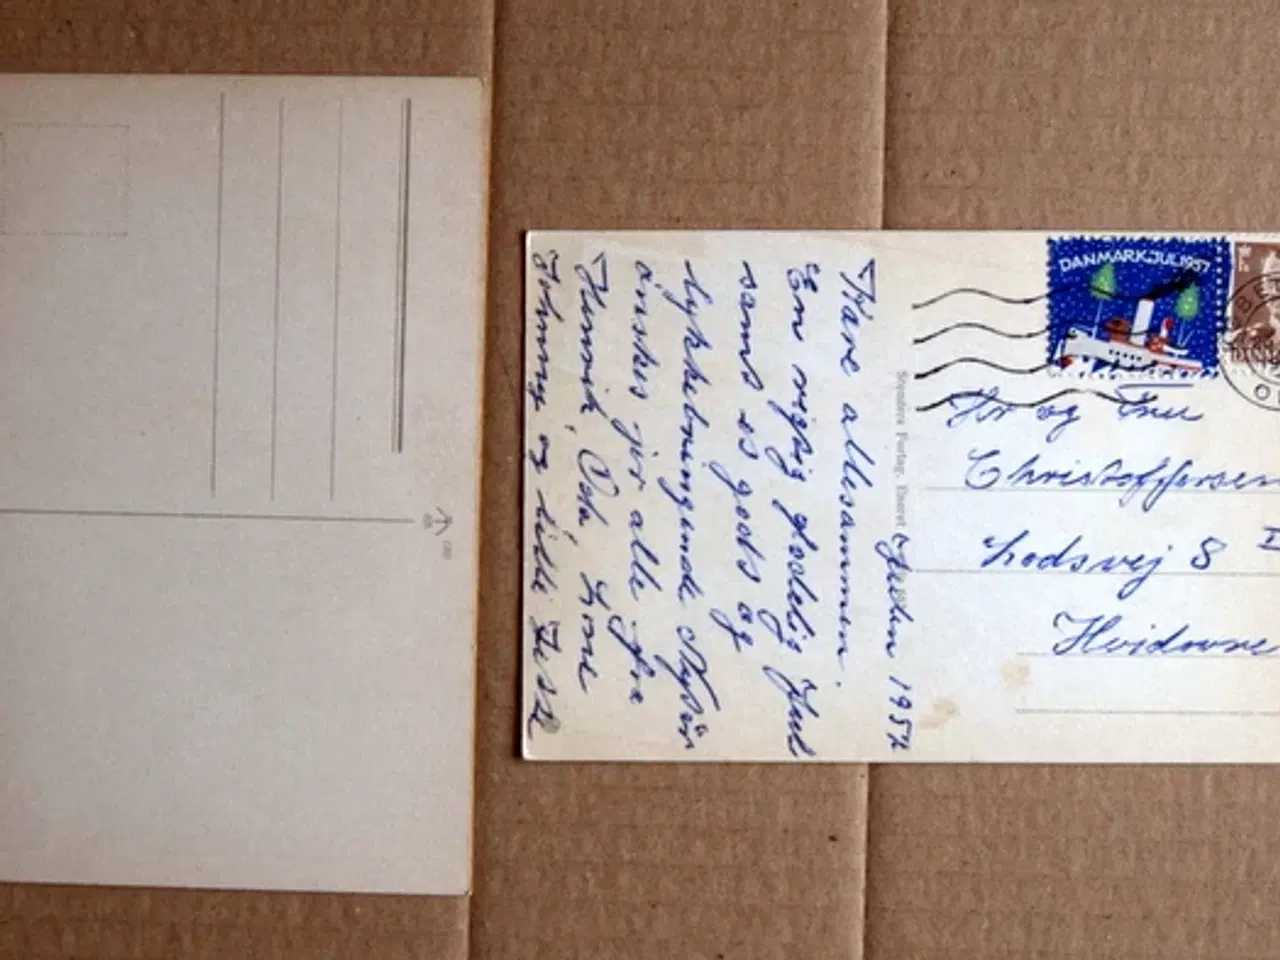 Julen 1957
Kære allesammen.
En rigtig glædelig Jul
samt et godt og
lykkebringende Nytår
ønskes for alle fra
Henrik, Lone
Johnny og lille
DANMARK JUL 1957
Hr og Fru
Christoffersen
Lodsvej 8 I
Hvidovre
Stenders Forlag. Eneret
DANMARK